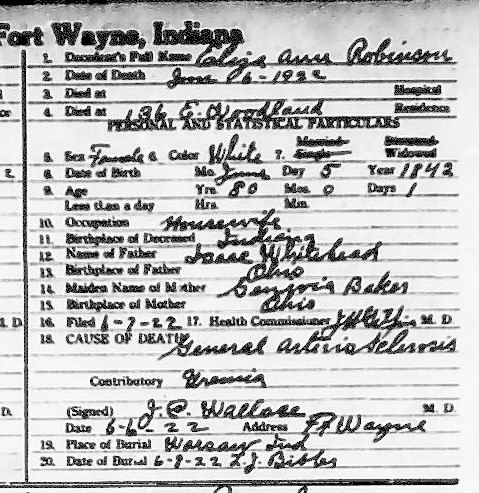 Fort Wayne, Indiana
1. Decedent's Full Name Eliza Ann Robinson
2. Date of Death June 6-1922
3. Died at Hospital
4. Died at 136 E. Woodland Residence
PERSONAL AND STATISTICAL PARTICULARS
Married Divorced
5. Sex Female 6. Color White 7. Single Widowed
8. Date of Birth Mo. June Day 5 Year 1842
9. Age Yrs. 80 Mos. 0 Days 1
Less than a day Hrs. Min.
10. Occupation Housewife
11. Birthplace of Deceased Indiana
12. Name of Father Isaac Whitehead
13. Birthplace of Father Ohio
14. Maiden Name of Mother Baker
15. Birthplace of Mother Ohio
16. Filed 6-7-22 17. Health Commissioner M. D.
18. CAUSE OF DEATH General Arterio Sclerosis
Contributory Uremia
(Signed) J. C. Wallace M. D.
Date 6-6-22 Address Ft Wayne
19. Place of Burial Warsaw Ind
20. Date of Burial 6-8-22 L. J. Bibler